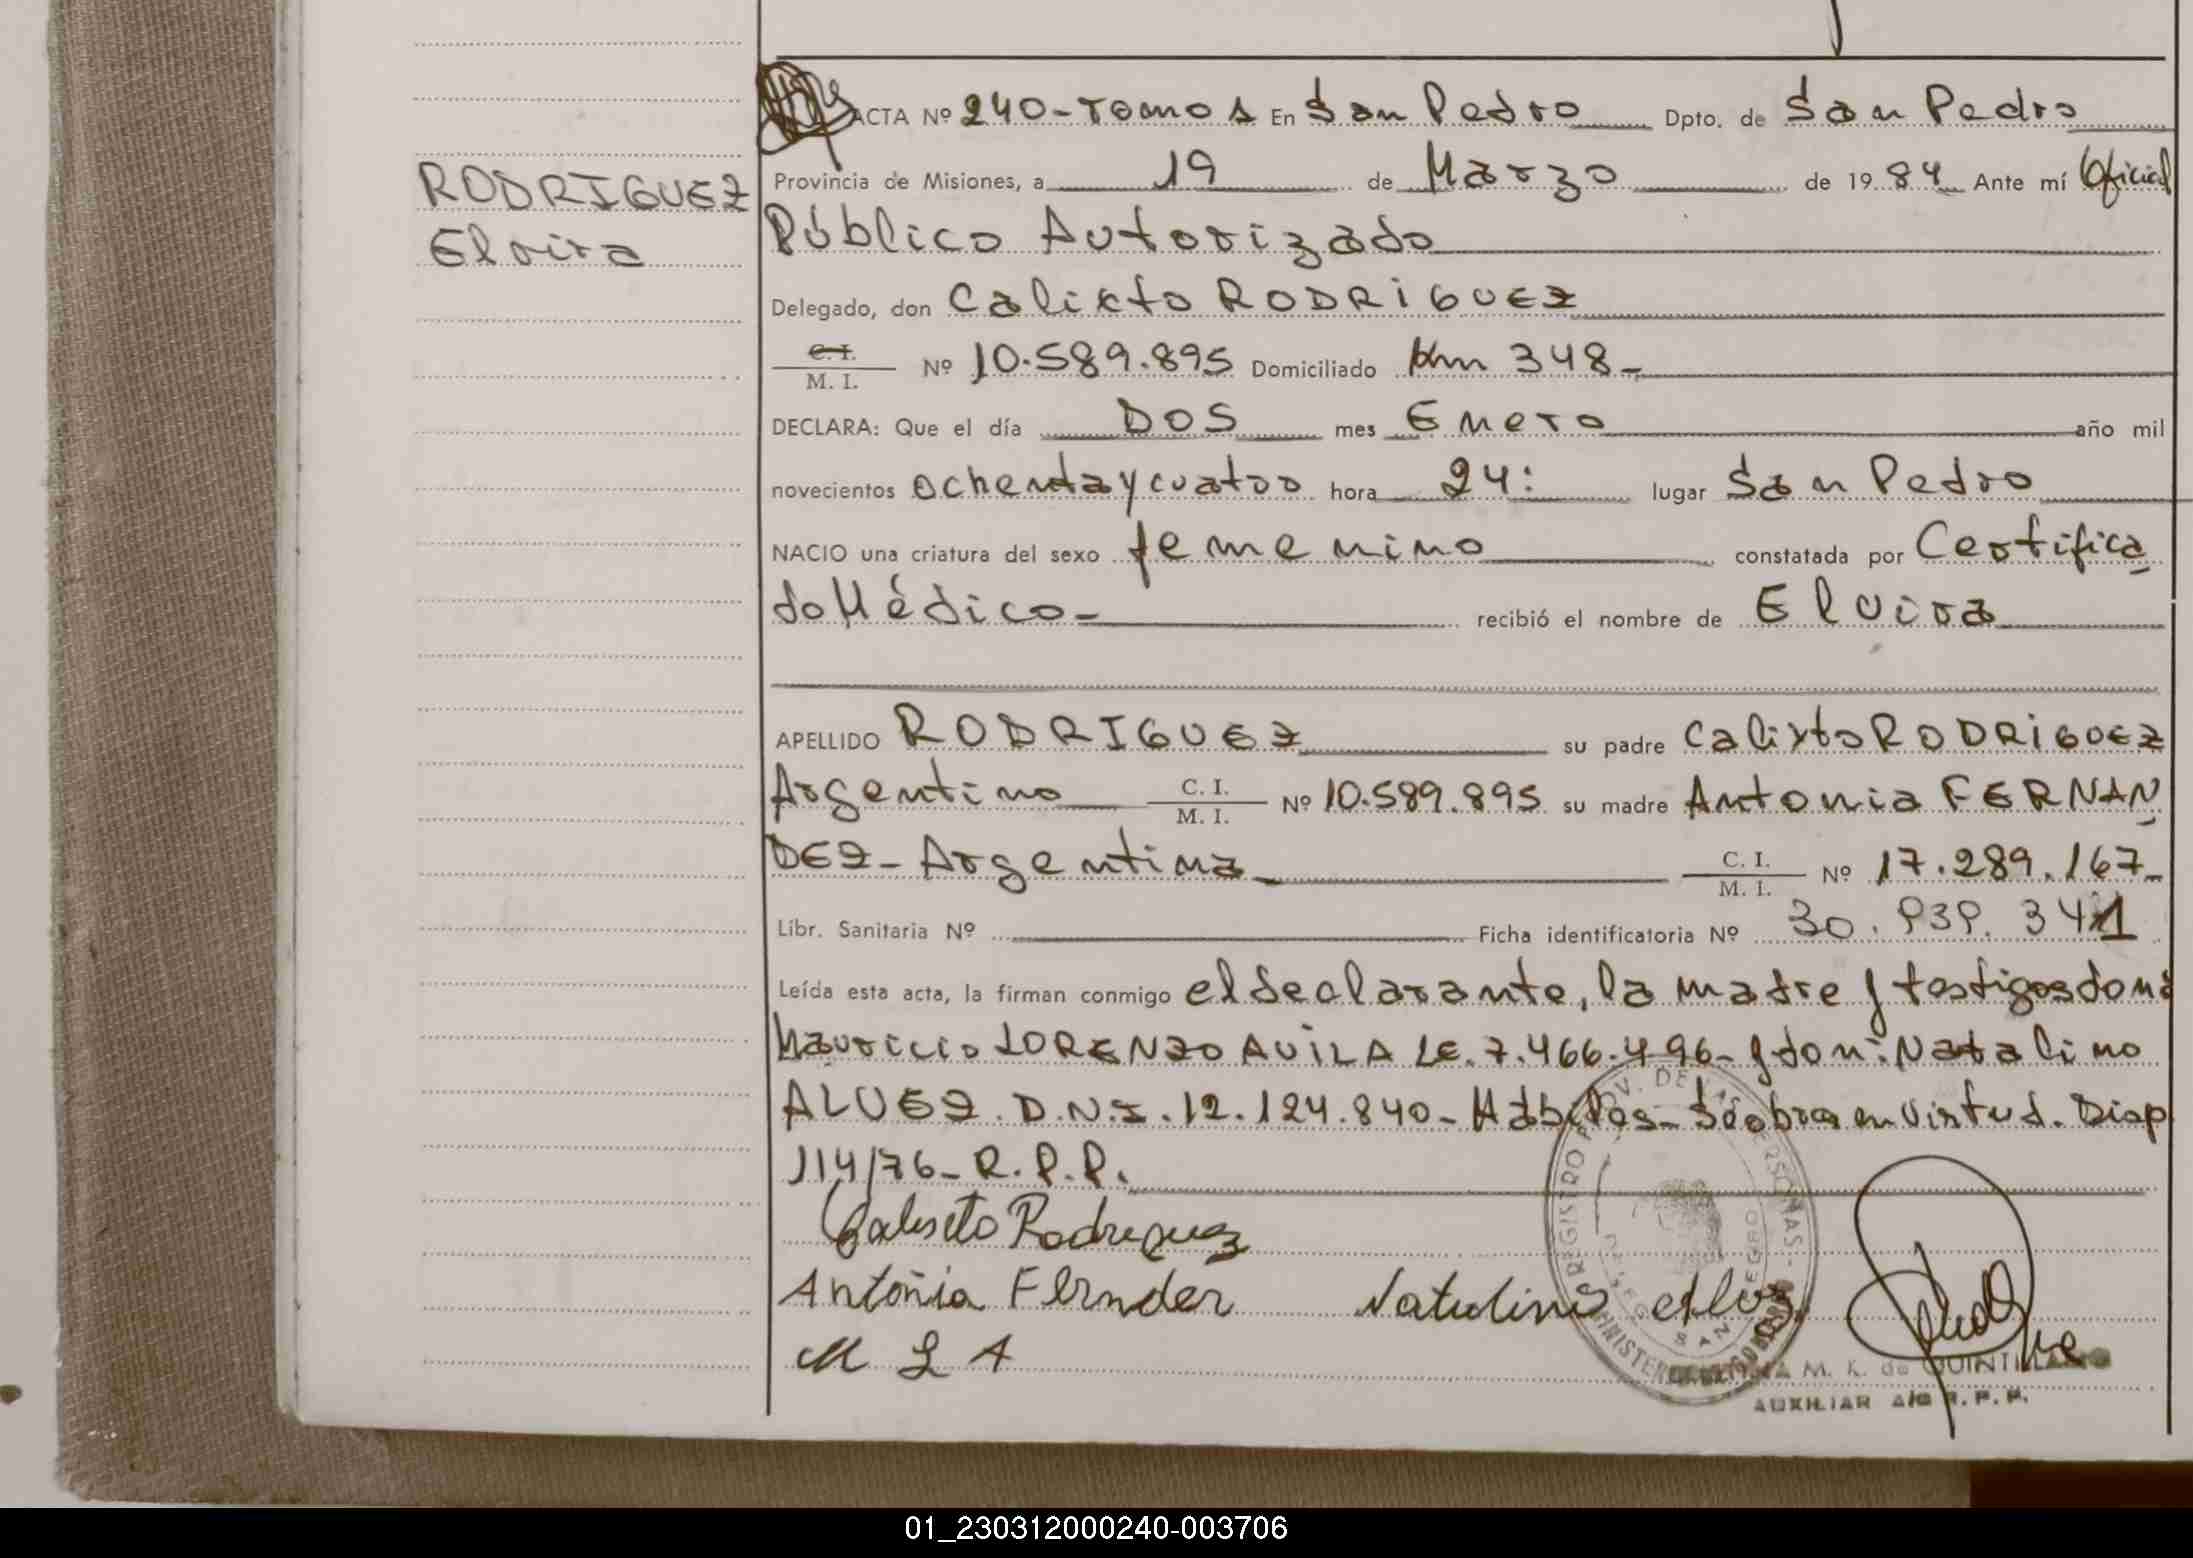 ACTA Nº 240-Tomo 1 En San Pedro Dpto. de San Pedro
RODRIGUEZ
Elvira
Provincia de Misiones, a 19 de Marzo de 1984 Ante mí Oficial
Público Autorizado
Delegado, don Calixto RODRIGUEZ
C. I.
M. I. Nº 10.589.895 Domiciliado Km 348-
DECLARA: Que el día DOS mes Enero año mil
novecientos ochenta y cuatro hora 24: lugar San Pedro
NACIO una criatura del sexo femenino constatada por Certifica
do Médico- recibió el nombre de Elvira
APELLIDO RODRIGUEZ su padre Calixto RODRIGUEZ
Argentino C. I. M. I. Nº 10.589.895 su madre Antonia FERNAN
DEZ- Argentina- C. I. M. I. Nº 17.289.167-
Libr. Sanitaria Nº Ficha identificatoria Nº 30.939.341
Leída esta acta, la firman conmigo el declarante, la madre y testigos don:
Mauricio LORENZO AVILA LE. 7.466.496- y don: Natalino
ALVEZ. D.N.I. 12.124.840- Hábiles- Se obra en Virtud. Disp
114/76- R.P.P.
Caliseto Rodriguez
Antoñia Fernder Natalino Alvez
M L A
REGISTRO PROV. DE LAS PERSONAS
SAN PEDRO
M. K. de QUINTILLANO
AUXILIAR A/C R. P. P.
01_230312000240-003706